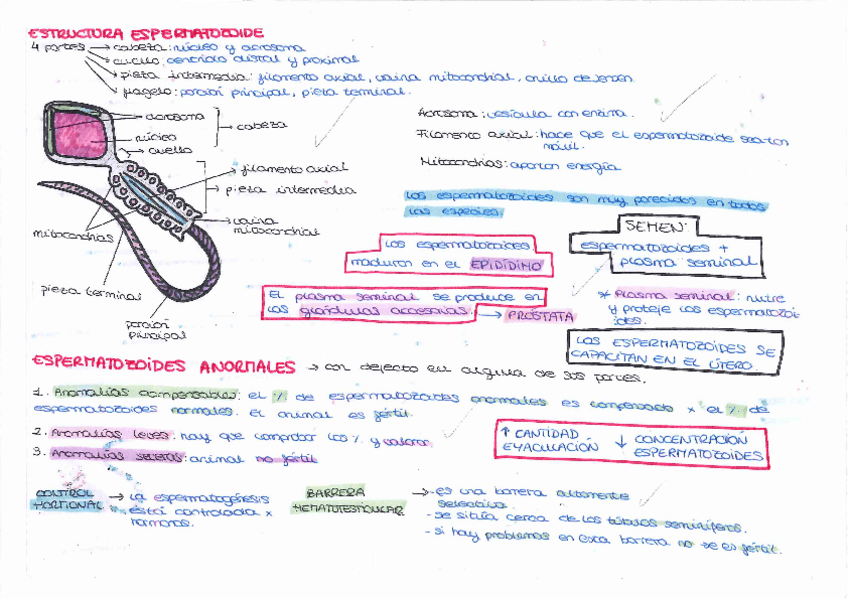 ESTRUCTURA ESPERMATOZOIDE
4 partes → cabeza: núcleo y acrosoma
→ cuello: centriolo distal y proximal
→ pieza intermedia: filamento axial, vaina mitocondrial, anillo de Jensen
→ flagelo: porción principal, pieza terminal.
acrosoma
núcleo
cuello
cabeza
filamento axial
pieza intermedia
vaina mitocondrial
mitocondrias
pieza terminal
porción principal
Acrosoma: vesícula con enzima.
Filamento axial: hace que el espermatozoide sea
móvil.
Mitocondrias: aportan energía
Los espermatozoides son muy parecidos en todas
las especies.
SEMEN:
espermatozoides +
plasma seminal
Los espermatozoides
maduran en el EPIDÍDIMO
El plasma seminal se produce en
las glándulas accesorias. → PRÓSTATA
* Plasma seminal: nutre
y proteje los espermatozoi-
des.
LOS ESPERMATOZOIDES SE
CAPACITAN EN EL ÚTERO
ESPERMATOZOIDES ANORMALES → con defecto en alguna de sus partes.
1. Anomalías compensables: el % de espermatozoides anormales es compensado x el % de
espermatozoides normales. El animal es fértil.
2. Anomalías leves: hay que comprobar los % y valorar.
3. Anomalías severas: animal no fértil
↑ CANTIDAD
EYACULACIÓN
↓ CONCENTRACIÓN
ESPERMATOZOIDES
CONTROL
HORMONAL
→ La espermatogénesis
está controlada x
hormonas.
BARRERA
HEMATOTESTICULAR
→ - es una barrera altamente
selectiva.
- se sitúa cerca de los túbulos seminíferos.
- si hay problemas en esta barrera no se es fértil.